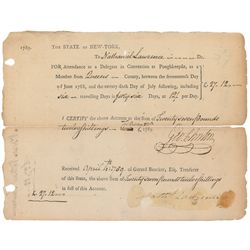 1789. THE STATE OF NEW-YORK,
To Nathaniel Lawrence Dr.
FOR Attendance as a Delegate in Convention at Poughkeepsie, as a
Member from Queens County, between the seventeenth Day
of June 1788, and the twenty sixth Day of July following, including
six travelling Days, forty six Days, at 12/ per Day. £ 27.12
I CERTIFY the above Account to the Sum of Twenty seven pounds
twelve shillings 1789.
Geo Clinton
Received April 4th 1789, of Gerard Bancker, Esq. Treasurer
of this State, the above Sum of Twenty seven pounds twelve shillings
£ 27.12 in full of this Account.